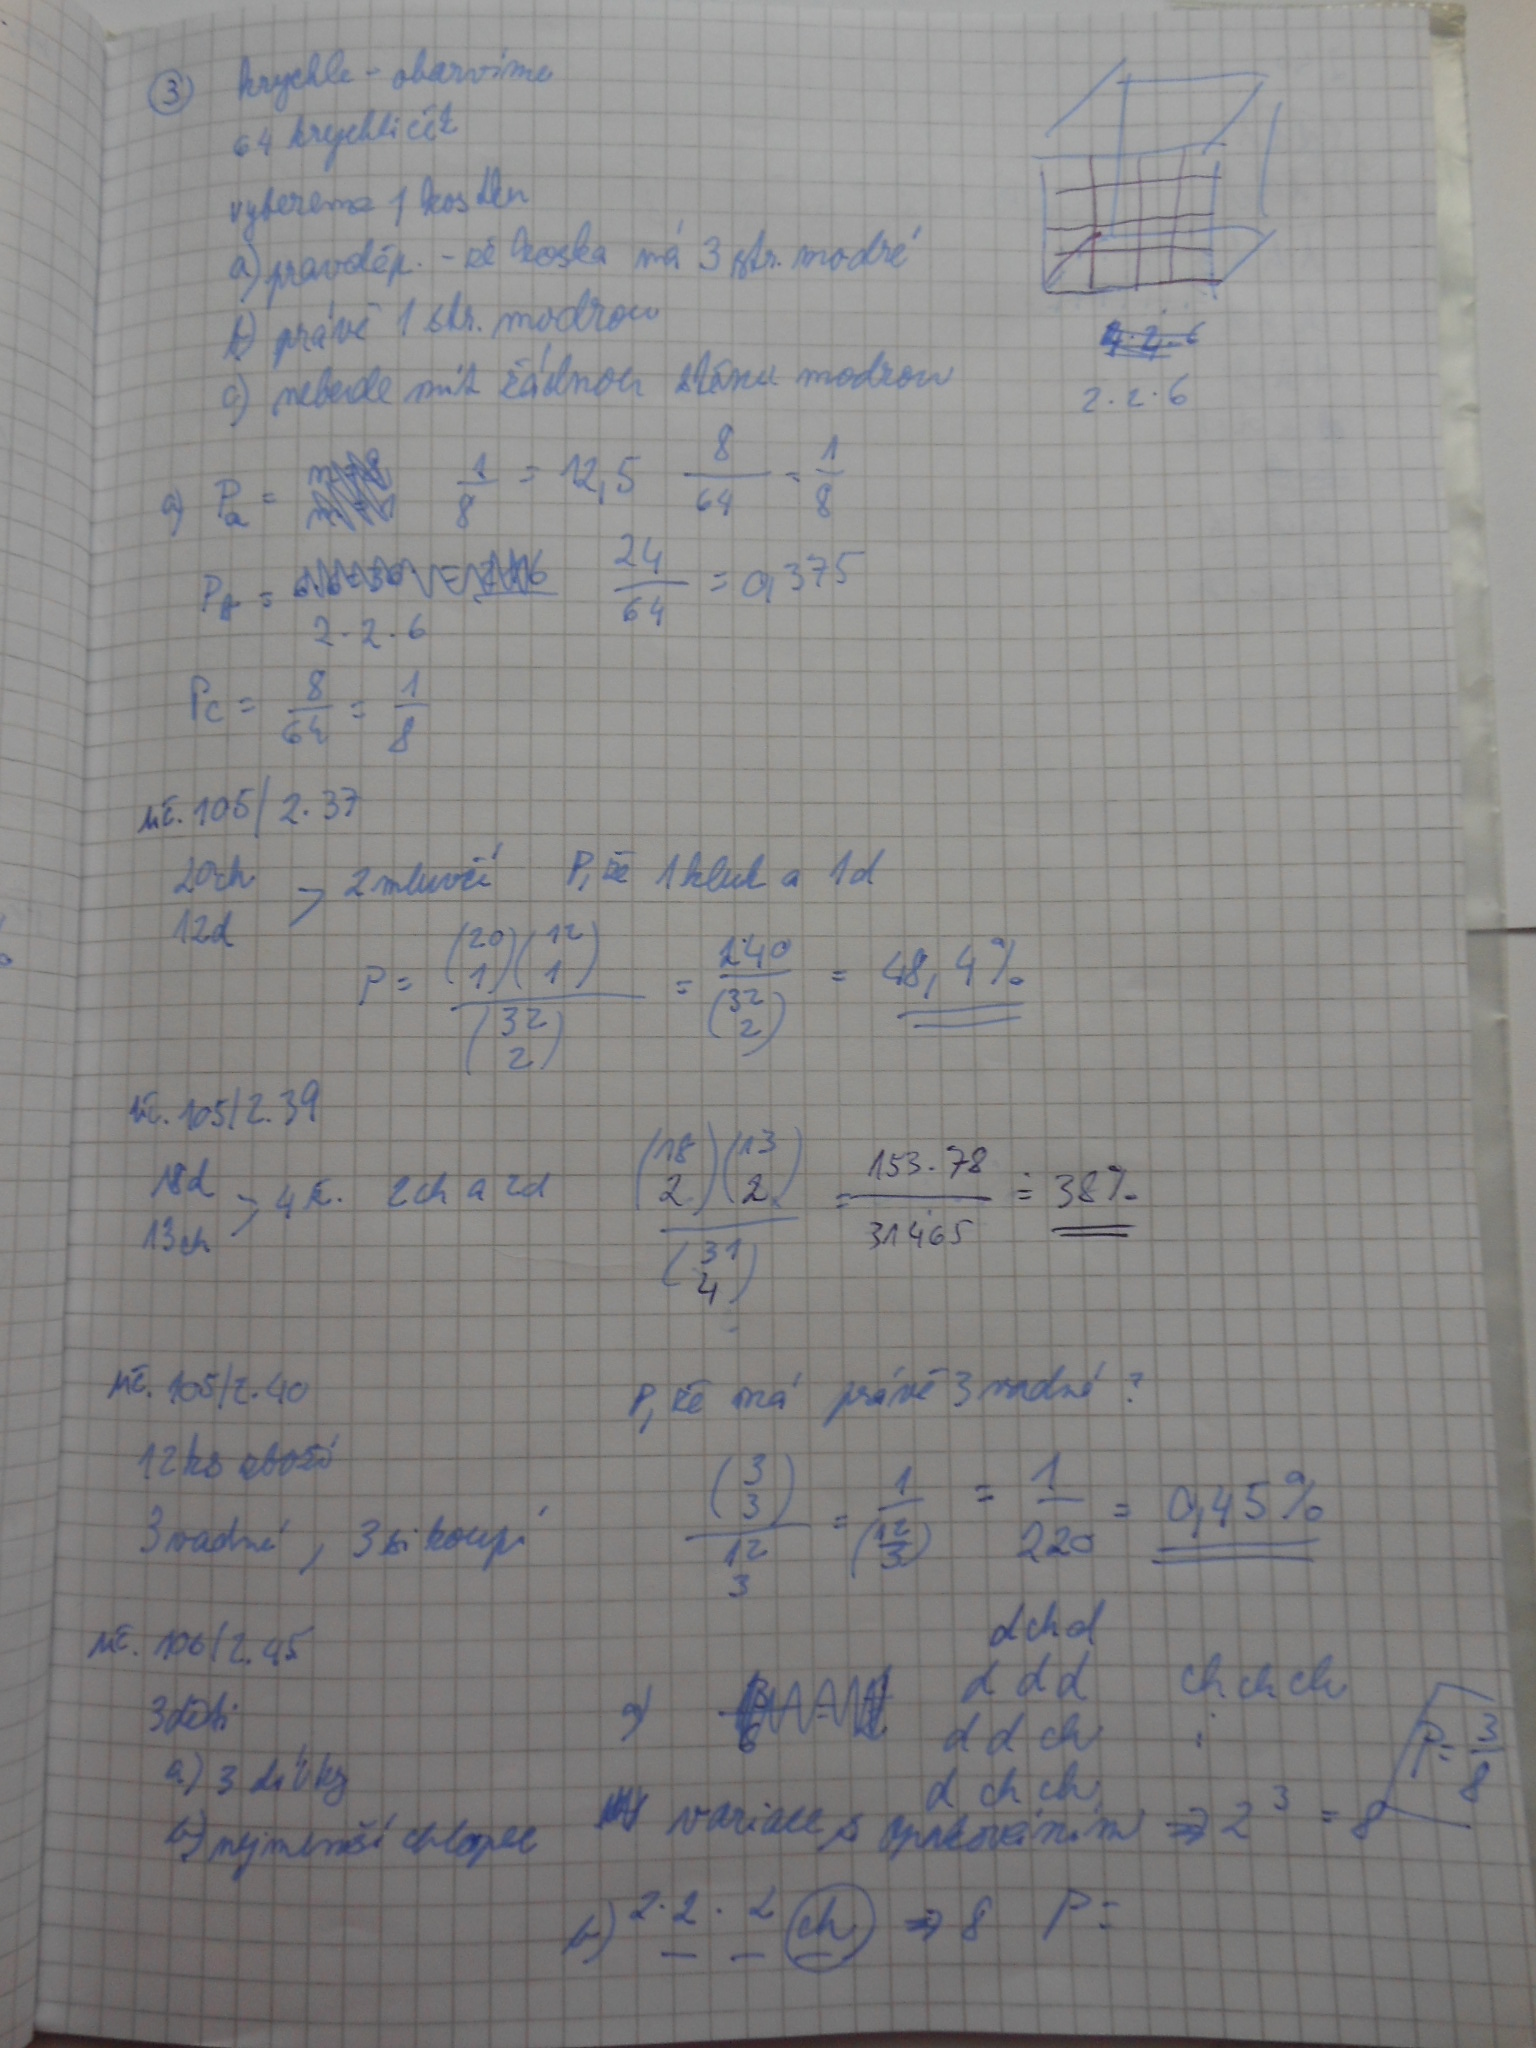 3 krychle - obarvíme
64 krychliček
vybereme 1 kostku
a) pravděp. - že kostka má 3 str. modré
b) právě 1 str. modrou
c) nebude mít žádnou stěnu modrou
2·2·6
a) Pa = 1/8 = 12,5 8/64 = 1/8
Pb = 2·2·6 24/64 = 0,375
Pc = 8/64 = 1/8
uč. 105/2.37
20ch
12d → 2 mluvčí P, že 1 kluk a 1d
P = (20 1)(12 1) / (32 2) = 240 / (32 2) = 48,4%
uč. 105/2.39
18d
13ch → 4 ž. 2ch a 2d (18 2)(13 2) / (31 4) = 153·78 / 31465 ≐ 38%
uč. 105/2.40 P, že má právě 3 vadné?
12 ks zboží
3 vadné, 3 si koupí (3 3) / 12 3 = 1 / (12 3) = 1/220 = 0,45%
uč. 106/2.45
3 děti
a) 3 dívky
b) nejmenší chlapec
a) dchd
d d d ch ch ch
d d ch
d ch ch
variace s opakováním ⇒ 2³ = 8 P = 3/8
b) 2·2·2 ch ⇒ 8 P =